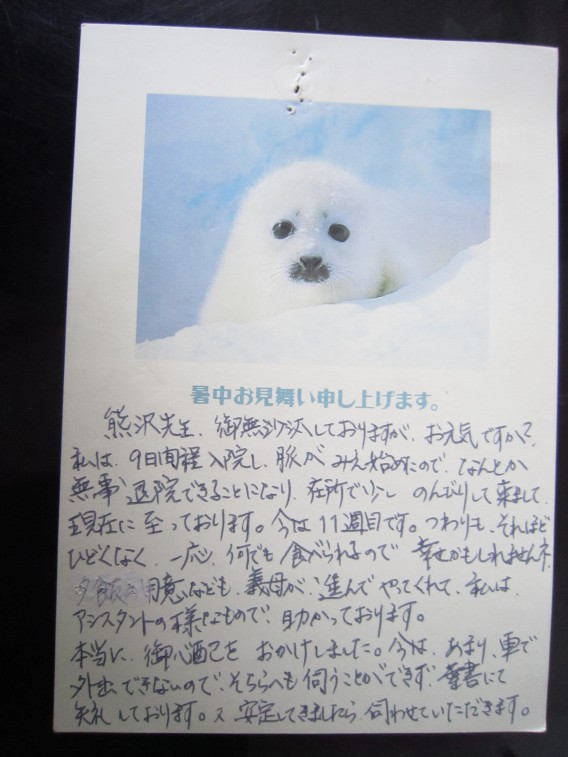 暑中お見舞い申し上げます。
熊沢先生、御無沙汰しておりますが、お元気ですか?
私は、9日間程入院し、脈がみえ始めたので、なんとか
無事退院できることになり、在所で少しのんびりして来まして、
現在に至っております。今は11週目です。つわりも、それほど
ひどくなく、一応、何でも食べられるので幸せかもしれませんネ。
夕飯の用意なども、義母が進んでやってくれて、私は、
アシスタントの様なもので、助かっております。
本当に、御心配をおかけしました。今は、あまり、車で
外出できないので、そちらへも伺うことができず、葉書にて
失礼しております。又安定してきましたら、伺わせていただきます。